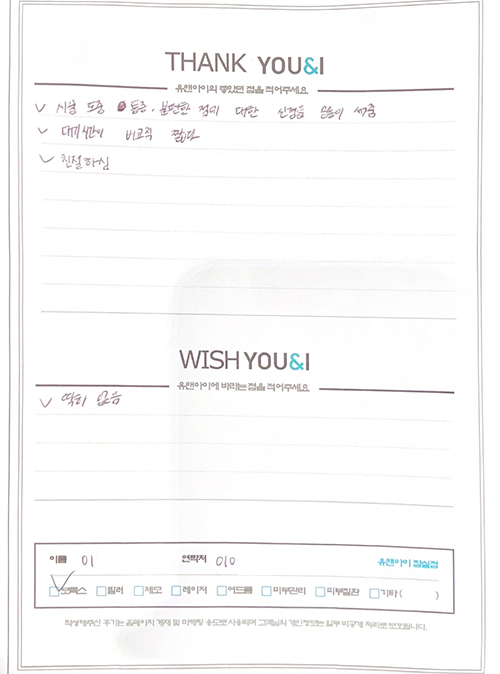 THANK YOU&I
유앤아이의 좋았던 점을 적어주세요
시술 도중 통증·불편한 점에 대한 신경을 많이 써줌
대기시간이 비교적 짧았다
친절하심
WISH YOU&I
유앤아이에 바라는 점을 적어주세요
딱히 없음
이름 이 연락처 010 유앤아이 잠실점
보톡스 필러 제모 레이저 여드름 피부관리 피부질환 기타( )
작성해주신 후기는 홈페이지 게재 및 마케팅 용도로 사용되며 고객님의 개인정보는 일부 비공개 처리로 보호됩니다.